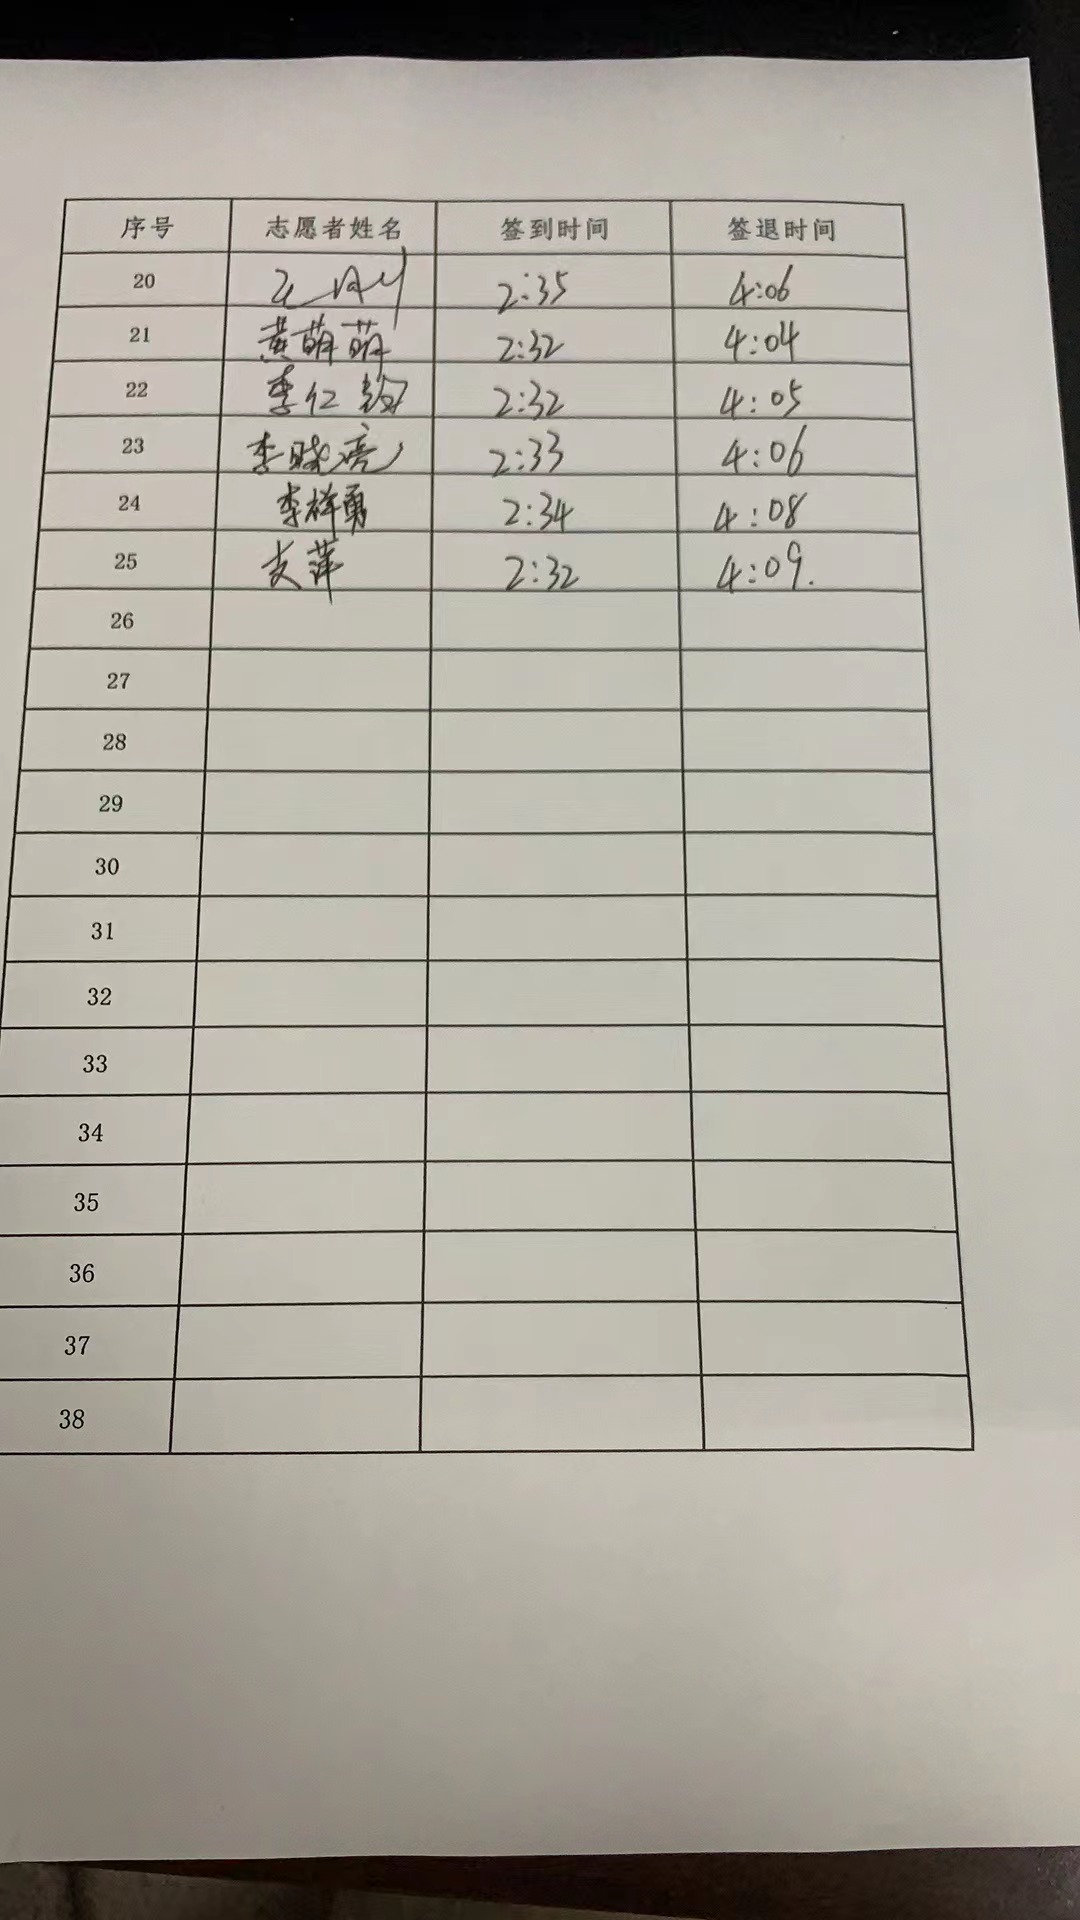 序号 志愿者姓名 签到时间 签退时间
20 2:35 4:06
21 黄萌萌 2:32 4:04
22 李仁 2:32 4:05
23 李晓亮 2:33 4:06
24 李祥勇 2:34 4:08
25 支萍 2:32 4:09.
26
27
28
29
30
31
32
33
34
35
36
37
38